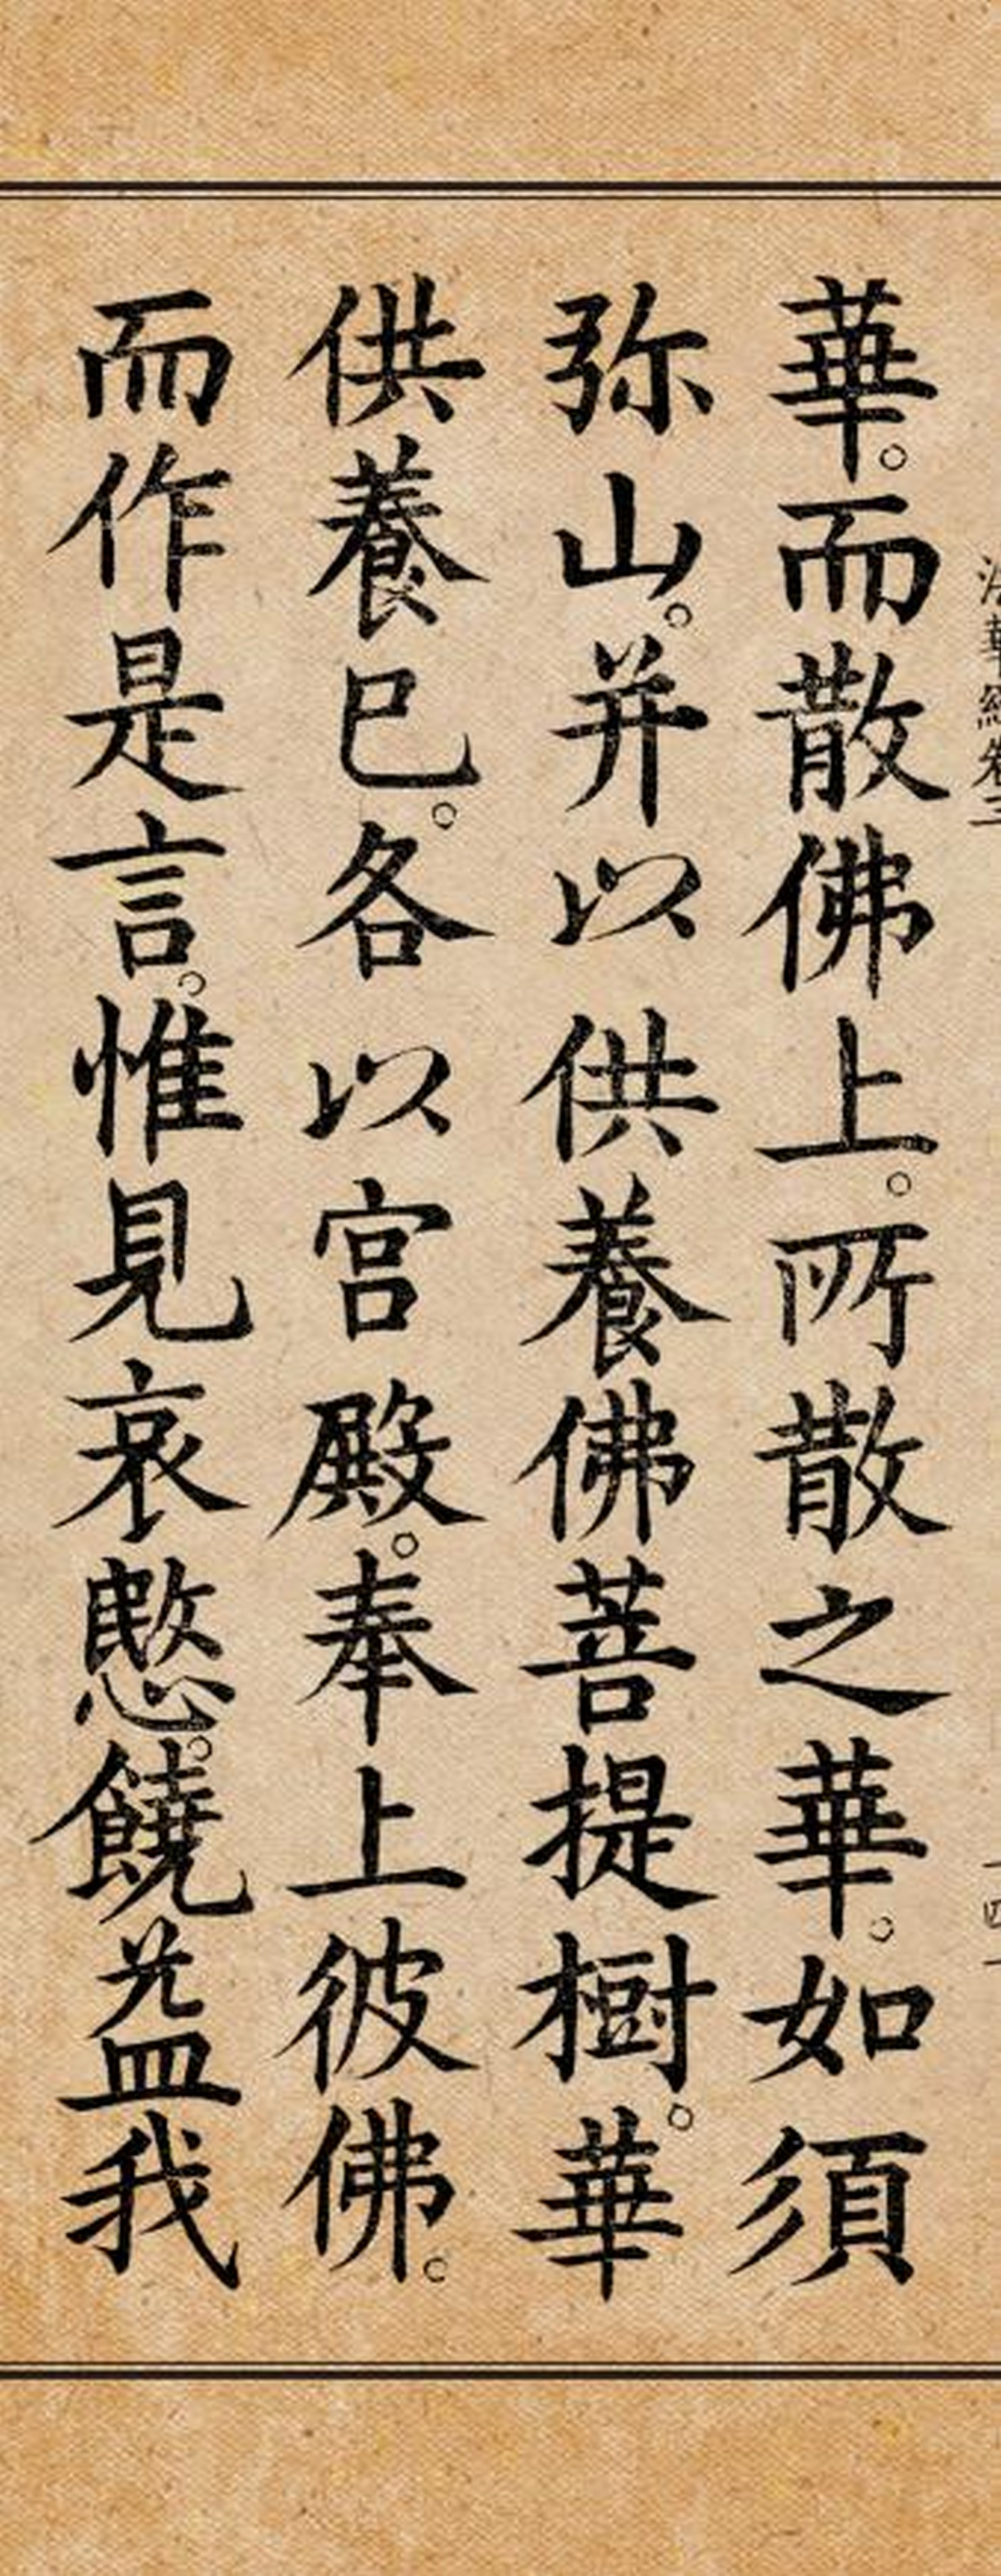 法華經卷三
華。而散佛上。所散之華。如須
弥山。并以供養佛菩提樹。華
供養已。各以宮殿。奉上彼佛。
而作是言。惟見哀愍。饒益我